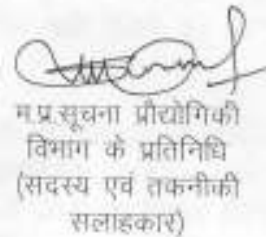 म.प्र.सूचना प्रौद्योगिकी
विभाग के प्रतिनिधि
(सदस्य एवं तकनीकी
सलाहकार)